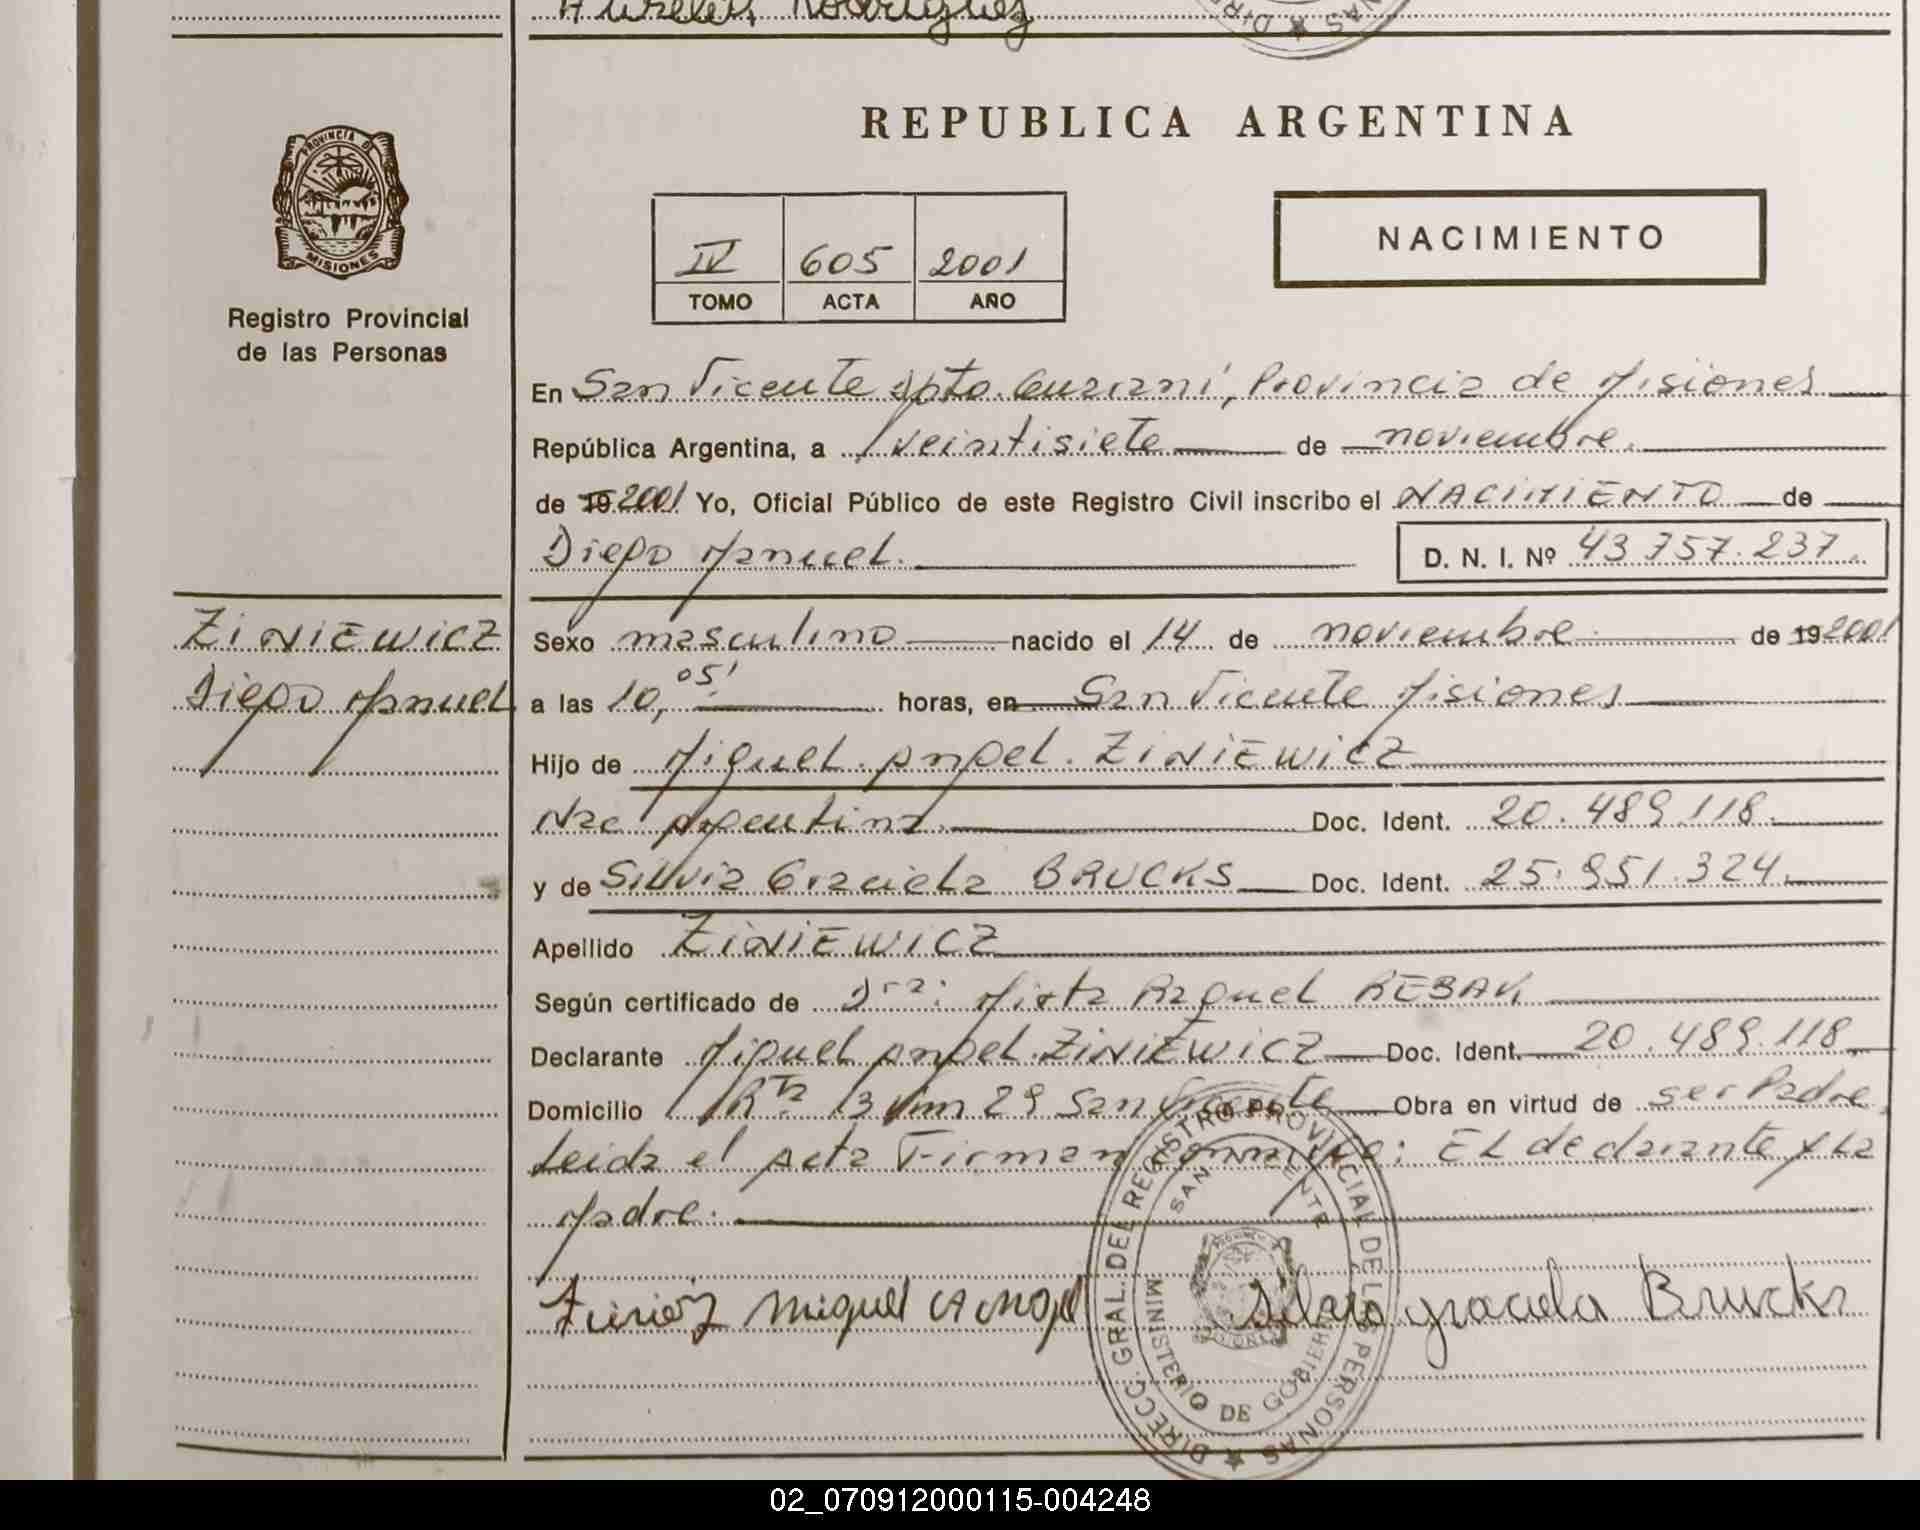 Aurelio Rodriguez
REPUBLICA ARGENTINA
PROVINCIA DE
MISIONES
Registro Provincial
de las Personas
IV 605 2001
TOMO ACTA AÑO
NACIMIENTO
En San Vicente Dpto. Guaraní, Provincia de Misiones
República Argentina, a veintisiete de noviembre.
de 19 2001 Yo, Oficial Público de este Registro Civil inscribo el NACIMIENTO de
Diego Manuel. D. N. I. Nº 43.757.237.
ZINIEWICZ
Diego Manuel
Sexo masculino nacido el 14 de noviembre de 19 2001
a las 10,05' horas, en San Vicente Misiones
Hijo de Miguel Angel ZINIEWICZ
Nac Argentina. Doc. Ident. 20.489.118.
y de Silvia Graciela BRUCKS Doc. Ident. 25.951.324.
Apellido ZINIEWICZ
Según certificado de Dra: Mirta Raquel REBAK
Declarante Miguel Angel ZINIEWICZ Doc. Ident. 20.489.118
Domicilio Rta 13 Km 29 San Vicente Obra en virtud de ser Padre.
Leida el acta Firman conmigo: El declarante y la
Madre.
Miguel Angel
Silvia graciela Brucks
DIRECC. GRAL. DEL REGISTRO PROVINCIAL DE LAS PERSONAS
SAN VICENTE
MINISTERIO DE GOBIERNO
02_070912000115-004248